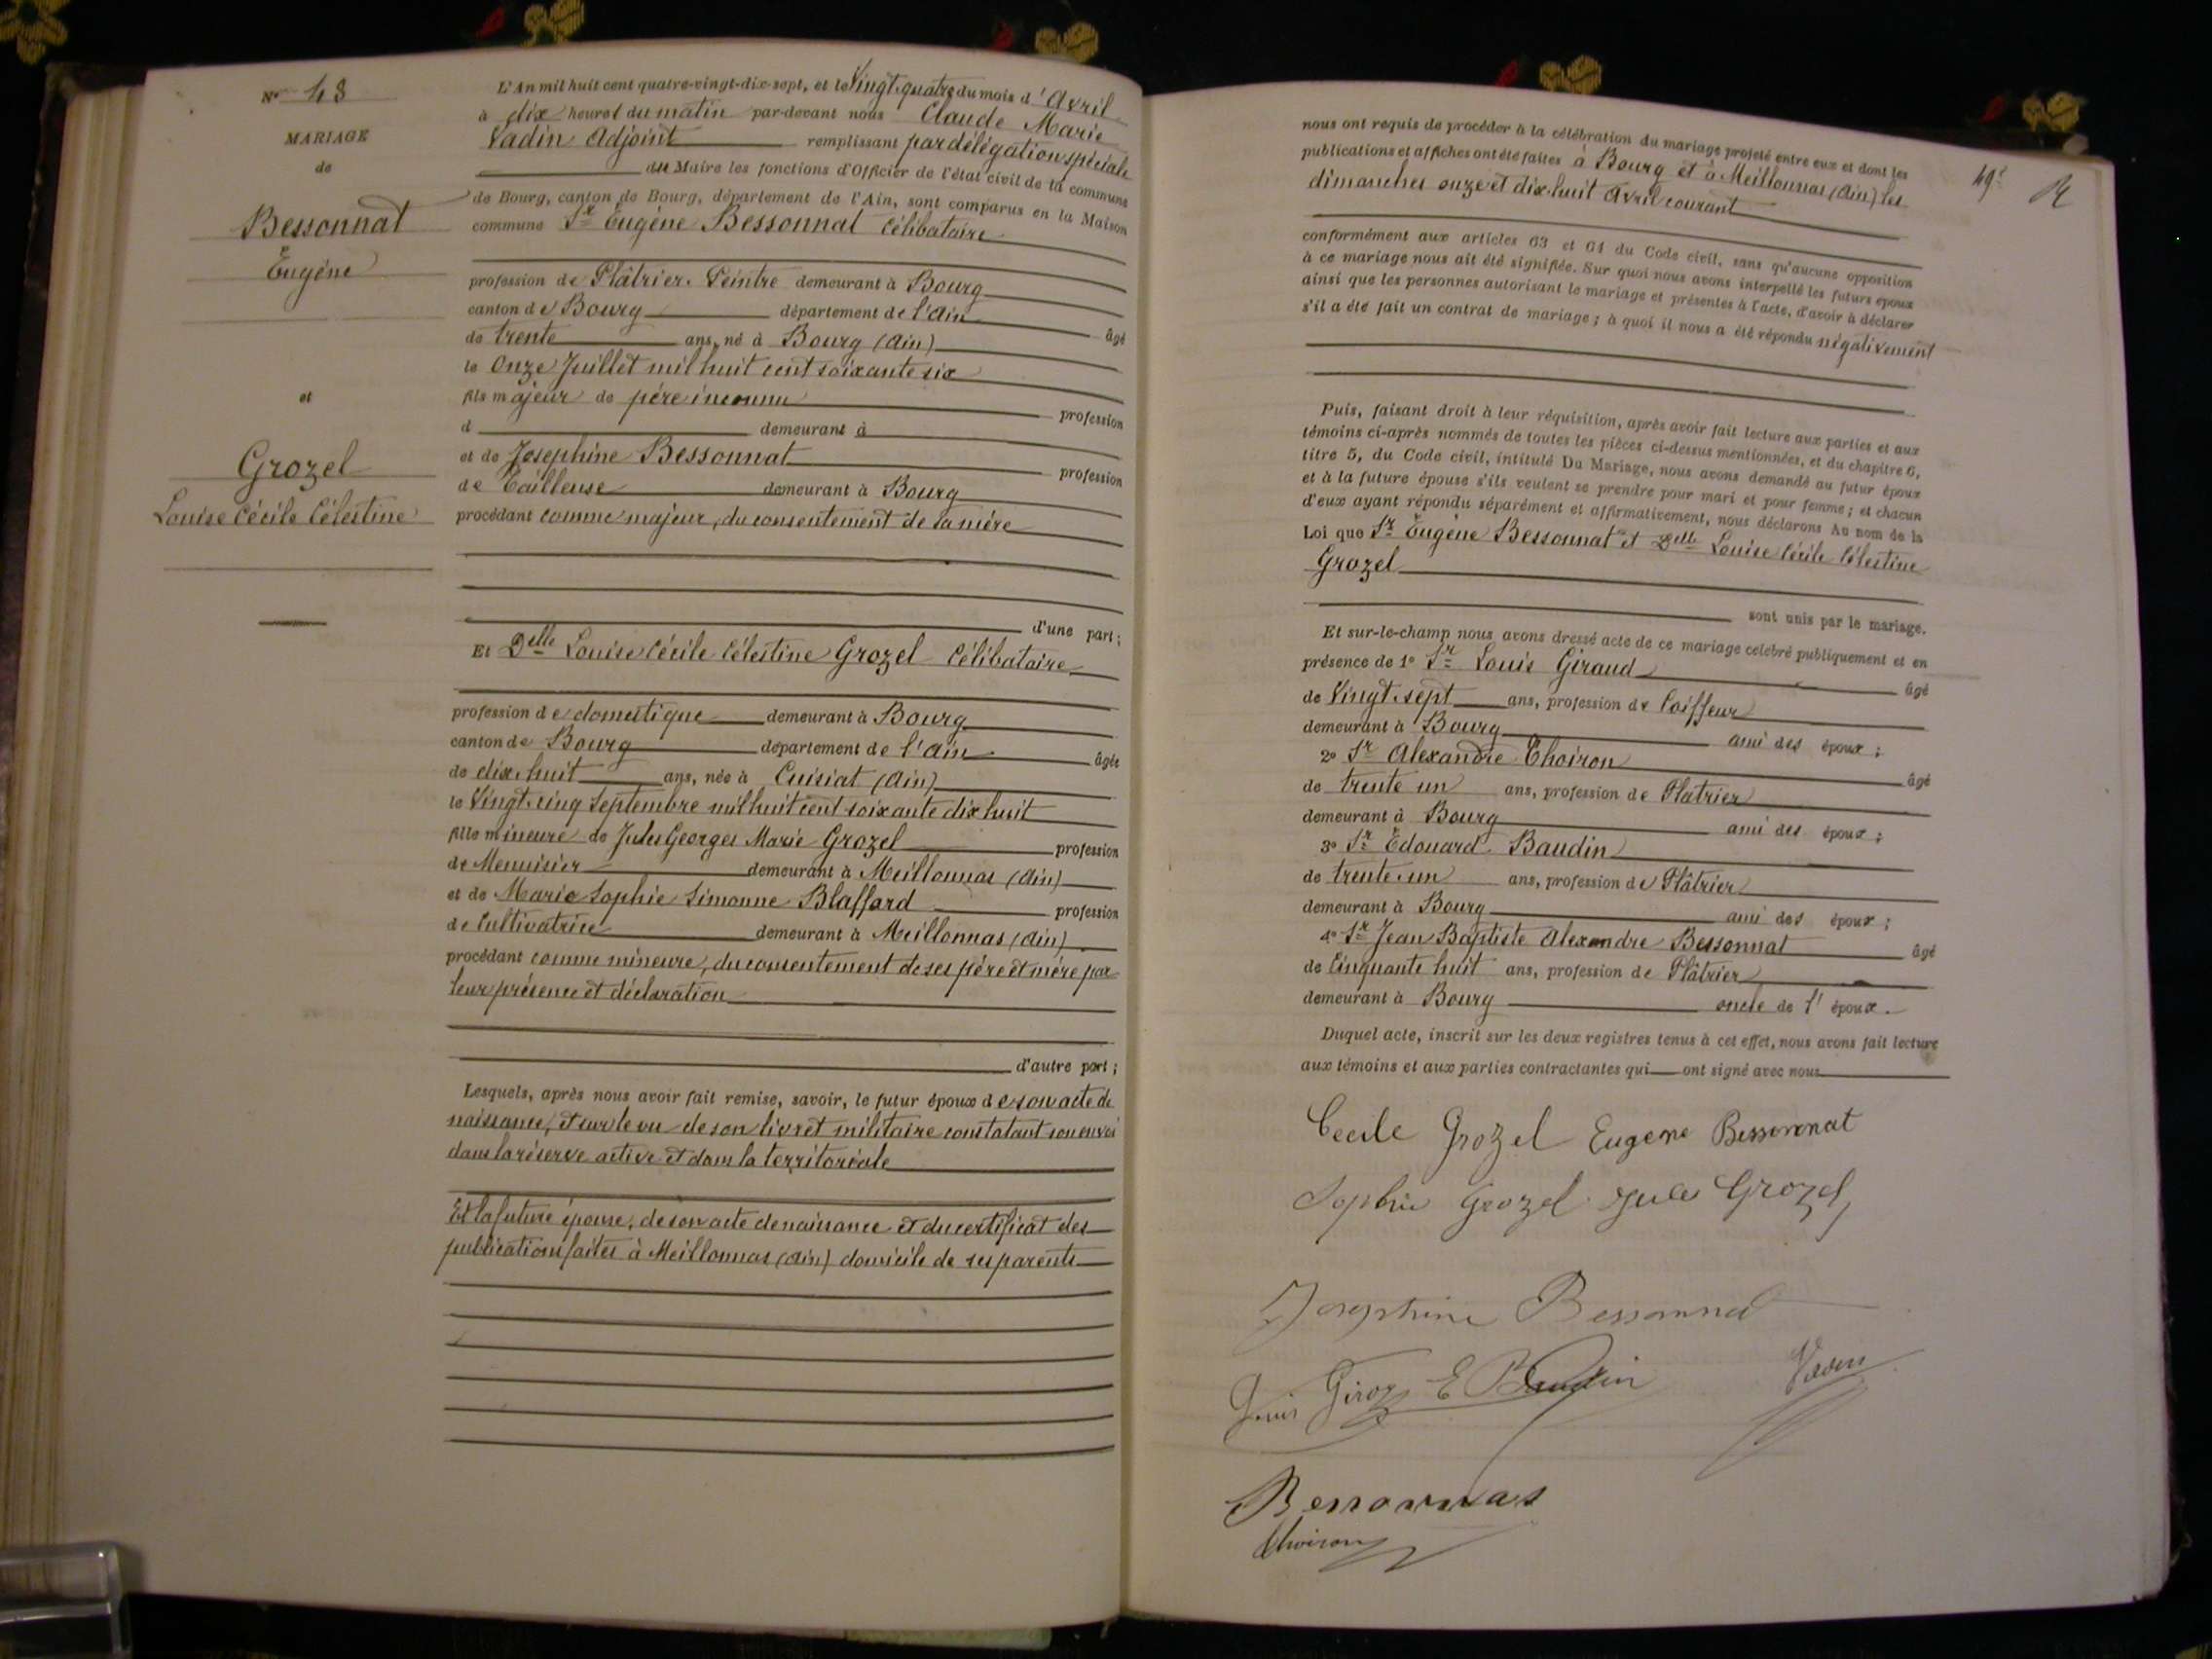 N° 48
MARIAGE
de
Bessonnat
Eugène
et
Grozel
Louise Cécile Célestine
L'An mil huit cent quatre-vingt-dix-sept, et le Vingt-quatre du mois d'Avril
à dix heures du matin par-devant nous Claude Marie
Vadin Adjoint remplissant par délégation spéciale
du Maire les fonctions d'Officier de l'état civil de la commune
de Bourg, canton de Bourg, département de l'Ain, sont comparus en la Maison
commune Sr Eugène Bessonnat célibataire
profession de Plâtrier-Peintre demeurant à Bourg
canton de Bourg département de l'Ain âgé
de trente ans, né à Bourg (Ain)
le Onze Juillet mil huit cent soixante six
fils majeur de père inconnu profession
d demeurant à
et de Josephine Bessonnat profession
de Tailleuse demeurant à Bourg
procédant comme majeur, du consentement de sa mère
d'une part ;
Et Delle Louise Cécile Célestine Grozel Célibataire
profession de domestique demeurant à Bourg
canton de Bourg département de l'Ain âgée
de dix-huit ans, née à Cuisiat (Ain)
le Vingt-cinq Septembre mil huit cent soixante dix huit
fille mineure de Jules Georges Marie Grozel profession
de Menuisier demeurant à Meillonnas (Ain)
et de Marie Sophie Simonne Blaffard profession
de Cultivatrice demeurant à Meillonnas (Ain)
procédant comme mineure, du consentement de ses père et mère par
leur présence et déclaration
d'autre part ;
Lesquels, après nous avoir fait remise, savoir, le futur époux de son acte de
naissance, et sur le vu de son livret militaire constatant son envoi
dans la réserve active et dans la territoriale
Et la future épouse, de son acte de naissance et du certificat des
publications faites à Meillonnas (Ain) domicile de ses parents
49e
nous ont requis de procéder à la célébration du mariage projeté entre eux et dont les
publications et affiches ont été faites à Bourg et à Meillonnas (Ain) les
dimanches onze et dix-huit Avril courant
conformément aux articles 63 et 64 du Code civil, sans qu'aucune opposition
à ce mariage nous ait été signifiée. Sur quoi nous avons interpellé les futurs époux
ainsi que les personnes autorisant le mariage et présentes à l'acte, d'avoir à déclarer
s'il a été fait un contrat de mariage ; à quoi il nous a été répondu négativement
Puis, faisant droit à leur réquisition, après avoir fait lecture aux parties et aux
témoins ci-après nommés de toutes les pièces ci-dessus mentionnées, et du chapitre 6,
titre 5, du Code civil, intitulé Du Mariage, nous avons demandé au futur époux
et à la future épouse s'ils veulent se prendre pour mari et pour femme ; et chacun
d'eux ayant répondu séparément et affirmativement, nous déclarons Au nom de la
Loi que Sr Eugène Bessonnat et Delle Louise Cécile Célestine
Grozel
sont unis par le mariage.
Et sur-le-champ nous avons dressé acte de ce mariage celebré publiquement et en
présence de 1° Sr Louis Giraud âgé
de Vingt-sept ans, profession de Coiffeur
demeurant à Bourg ami des époux ;
2° Sr Alexandre Thoiron âgé
de trente un ans, profession de Plâtrier
demeurant à Bourg ami des époux ;
3° Sr Edouard Baudin
de trente-un ans, profession de Plâtrier
demeurant à Bourg ami des époux ;
4° Sr Jean Baptiste Alexandre Bessonnat âgé
de Cinquante huit ans, profession de Plâtrier
demeurant à Bourg oncle de l'époux.
Duquel acte, inscrit sur les deux registres tenus à cet effet, nous avons fait lecture
aux témoins et aux parties contractantes qui ont signé avec nous
Cecile Grozel Eugene Bessonnat
Sophie Grozel Jules Grozel
Josephine Bessonnat
E Baudin Vadin
Bessonnat
Thoiron